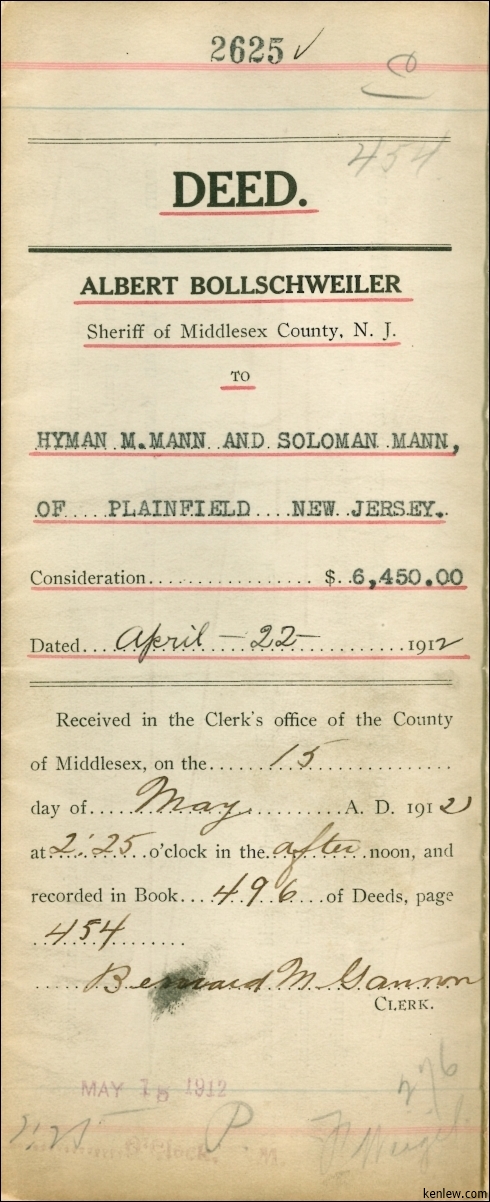 2625 ✓
454
DEED.
ALBERT BOLLSCHWEILER
Sheriff of Middlesex County, N. J.
TO
HYMAN M. MANN AND SOLOMAN MANN,
OF PLAINFIELD NEW JERSEY.
Consideration................. $ 6,450.00
Dated.... April - 22 - ............1912
Received in the Clerk's office of the County
of Middlesex, on the ...... 15 ..............
day of..... May ..........A. D. 1912
at 2:25 o'clock in the after noon, and
recorded in Book... 496 ...of Deeds, page
..454........
..... Bernard M Gannon
CLERK.
MAY 15 1912
2:25 P
O'Clock, M.
kenlew.com